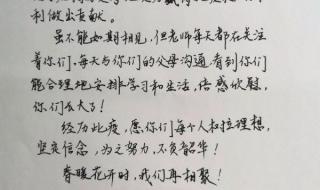 利做出贡献。
虽不能如期相见,但老师每天都在关注
着你们,每天与你们的父母沟通,看到你们
能合理地安排学习和生活,倍感欣慰,
你们长大了!
经历此疫,愿你们每个人和拉理想,
坚定信念,为之努力,不负韶华!
春暖花开时,我们再相聚!